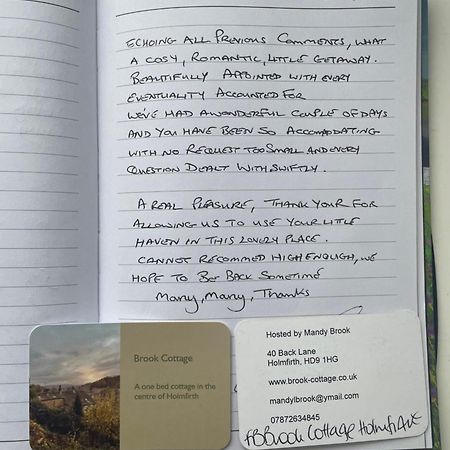 ECHOING ALL PREVIOUS COMMENTS, WHAT
A COSY, ROMANTIC, LITTLE GETAWAY.
BEAUTIFULLY APPOINTED WITH EVERY
EVENTUALITY ACCOUNTED FOR
WE'VE HAD A WONDERFUL COUPLE OF DAYS
AND YOU HAVE BEEN SO ACCOMODATING
WITH NO REQUEST TOO SMALL AND EVERY
QUESTION DEALT WITH SWIFTLY.
A REAL PLEASURE, THANK YOUR FOR
ALLOWING US TO USE YOUR LITTLE
HAVEN IN THIS LOVELY PLACE.
CANNOT RECOMMED HIGH ENOUGH, WE
HOPE TO BE BACK SOMETIME
Many, Many, Thanks
Brook Cottage
A one bed cottage in the
centre of Holmfirth
Hosted by Mandy Brook
40 Back Lane
Holmfirth, HD9 1HG
www.brook-cottage.co.uk
mandylbrook@ymail.com
07872634845
FB Brook Cottage Holmfirth